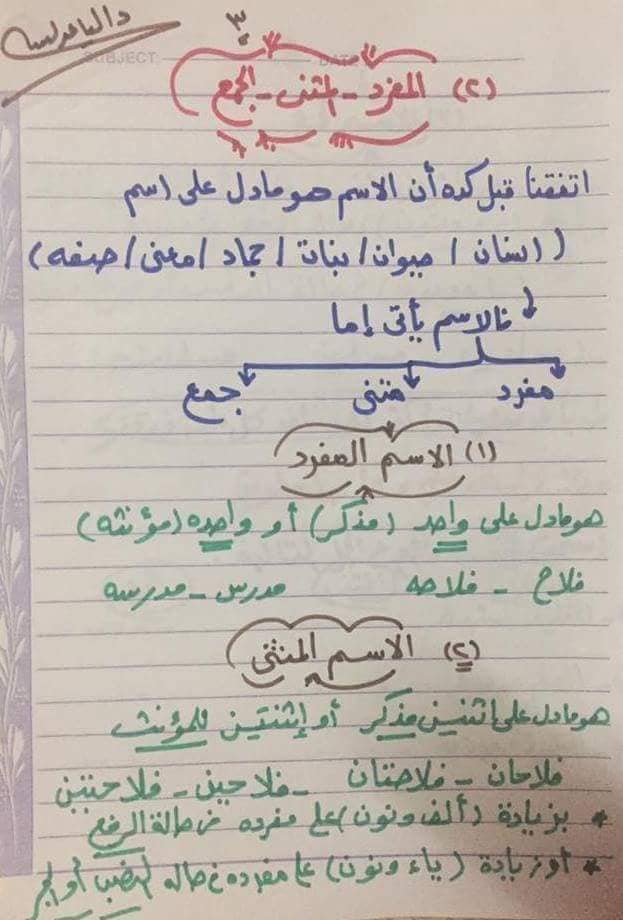 ٣
SUBJECT:
DATE
(٢) المفرد - المثنى - الجمع
اتفقنا قبل كده أن الاسم هو مادل على اسم
(إنسان / حيوان / نبات / جماد / معنى / صفه)
فالاسم يأتى إما
مفرد مثنى جمع
(١) الاسم المفرد
هو مادل على واحد (مذكر) أو واحده (مؤنثه)
فلاح - فلاحه مدرس - مدرسه
(٢) الاسم المثنى
هو مادل على اثنين مذكر أو إثنتين للمؤنث
فلاحان - فلاحتان - فلاحين - فلاحتين
* بزيادة (ألف ونون) على مفرده فى حالة الرفع
* أو زيادة (ياء ونون) على مفرده فى حاله النصب أو الجر